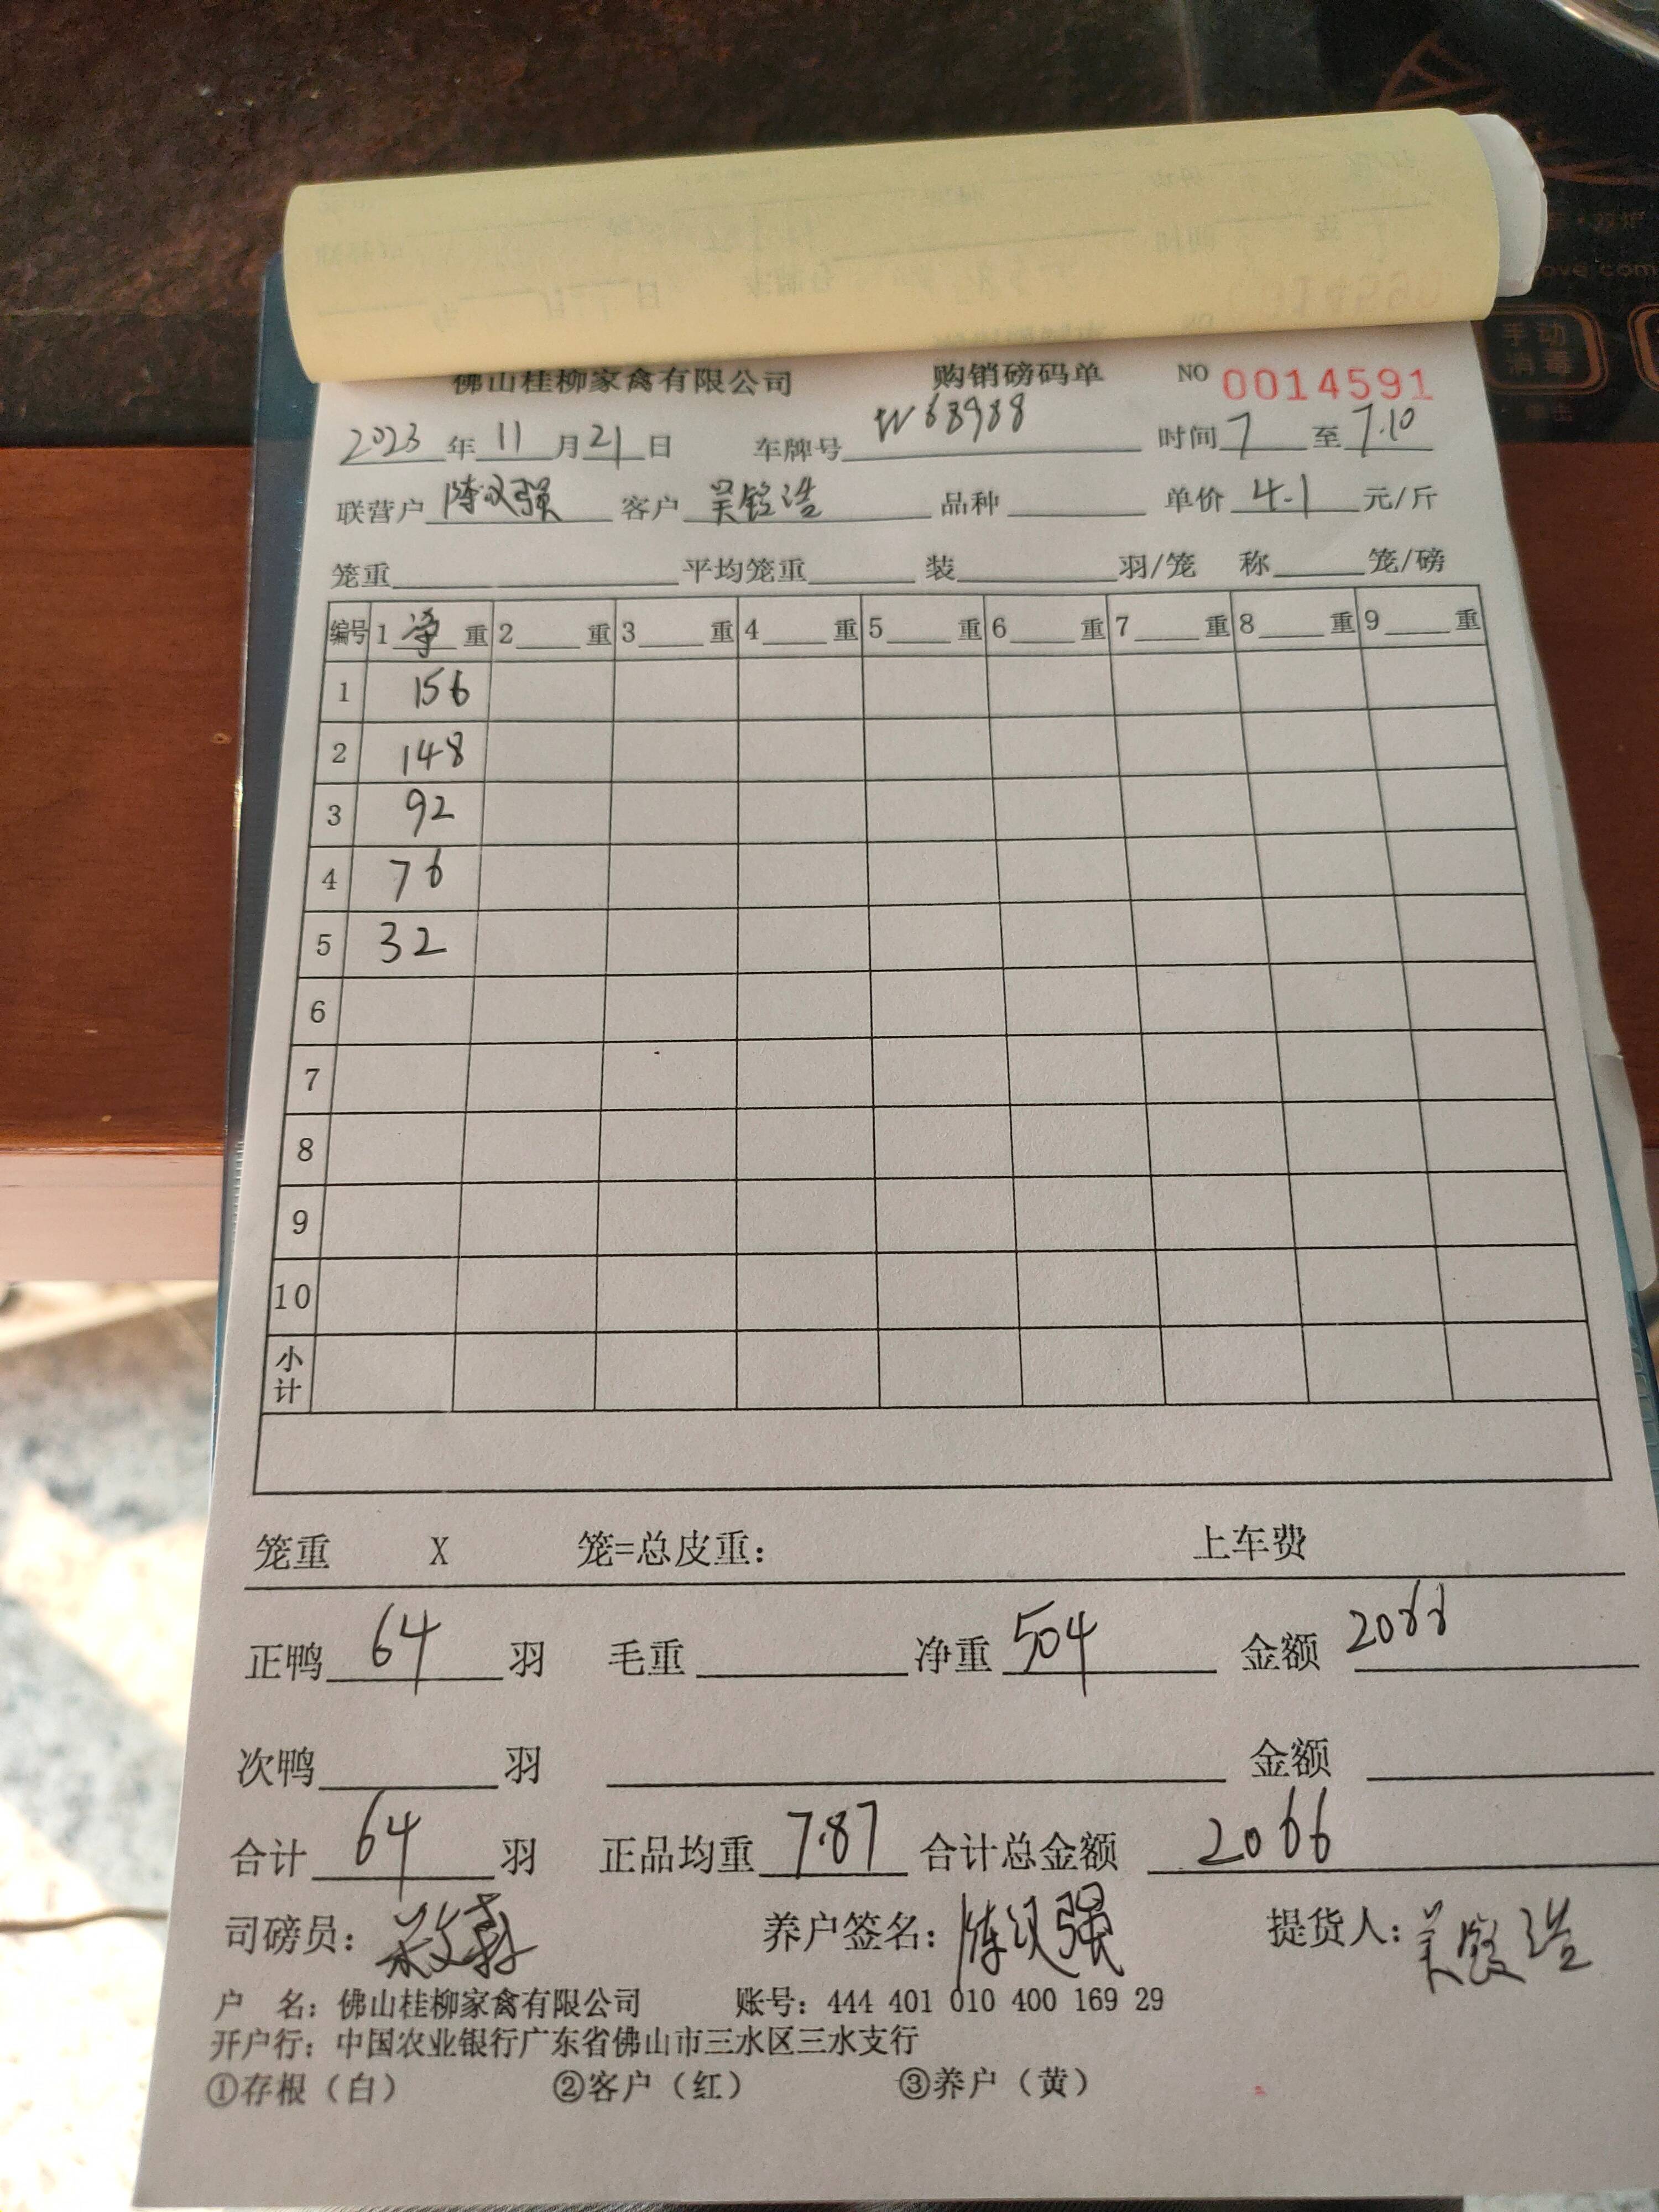 佛山桂柳家禽有限公司 购销磅码单 NO 0014591
2023年11月21日 车牌号 W68988 时间7至7.10
联营户 陈汉强 客户 吴铨浩 品种 单价 4.1 元/斤
笼重 平均笼重 装 羽/笼 称 笼/磅
编号 1 净 重 2 重 3 重 4 重 5 重 6 重 7 重 8 重 9 重
1 156
2 148
3 92
4 76
5 32
6
7
8
9
10
小计
笼重 X 笼=总皮重: 上车费
正鸭 64 羽 毛重 净重 504 金额 2066
次鸭 羽 金额
合计 64 羽 正品均重 7.87 合计总金额 2066
司磅员: 养户签名: 陈汉强 提货人: 吴铨浩
户 名: 佛山桂柳家禽有限公司 账号: 444 401 010 400 169 29
开户行: 中国农业银行广东省佛山市三水区三水支行
①存根（白） ②客户（红） ③养户（黄）
手动
消毒